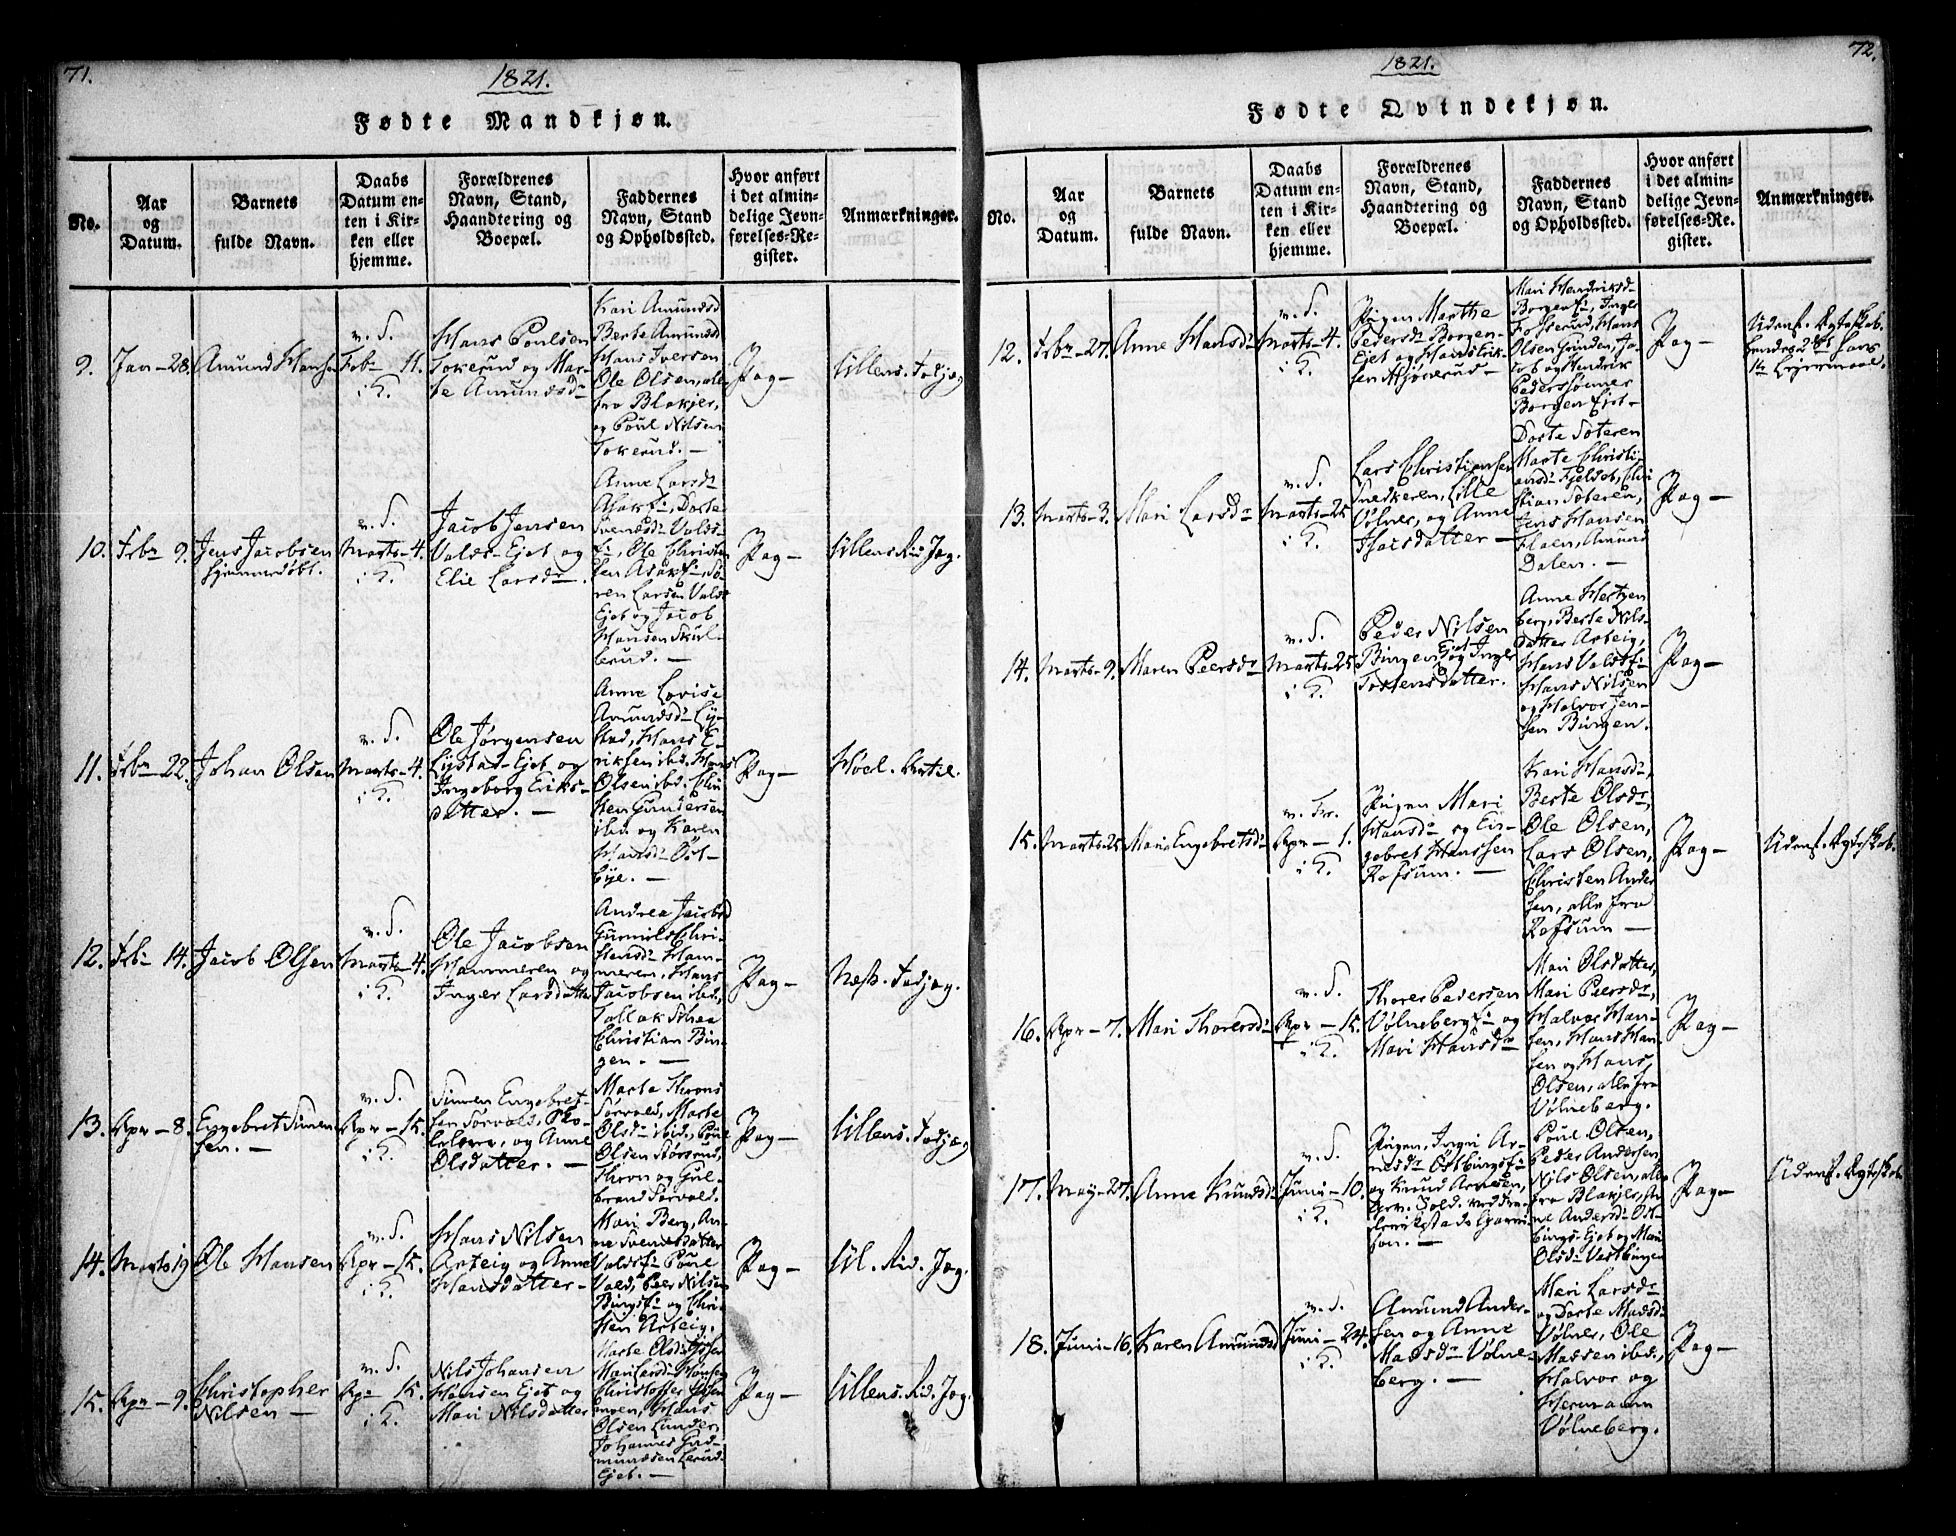 71.
1821.
Fødte Mandkjøn.
No.
Aar
og
Datum.
Barnets
fulde Navn.
Daabs
Datum en-
ten i Kir-
ken eller
hjemme.
Forældrenes
Navn, Stand,
Haandtering og
Boepæl.
Faddernes
Navn, Stand
og Opholdssted.
Hvor anført
i det almin-
delige Jevn-
førelses-Re-
gister.
Anmærkninger.
9.
Jan - 28.
Amund Hansen
v. S.
Feb - 11.
i K.
Hans Poulsen
Tokerud og Mar-
te Amundsd
Kari Amundsd
Berte Amundsd
Hans Iversen
Ole Olsen, alle
fra Blakjer,
og Poul Nilsen
Tokerud. -
Pag -
10.
Febr 9.
Jens Jacobsen
hjemmedøbt.
v. S.
Marts - 4.
i K.
Jacob Jensen
Valds-Ejet og
Elie Larsdr.
Anne Larsdr
Dorte
Svendsdr Valds-
Ole Christen
sen
ren Larsen Valds
Ejet og Jacob
Hansen Skul-
lerud. -
Pag -
11.
Febr 22.
Johan Olsen
v. S.
Marts - 4.
i K.
Ole Jørgensen
Lystad-Ejet og
Ingeborg Eriks-
datter. -
Anne Lovise
Amundsdr Ly-
stad, Hans E-
riksen ibid. Hans
Olsen ibd.
Gundersen
ibid og Karen
Hansdr Øst-
bye. -
Pag -
12.
Feb - 14.
Jacob Olsen
v. S.
Marts - 4.
i K.
Ole Jacobsen
Hammeren og
Inger Larsdatter
Andrea Jacobsd
Gunnild Chri-
stensdr Ham-
meren, Hans
Jacobsen ibid,
Christian Bin-
gen. -
Pag -
13.
Apr - 8.
Engebret Simen
sen. -
v. S.
Apr - 15.
i K.
Simen Engebret-
sen Sørvald,
og Anne
Olsdatter. -
Marte Throns
Sørvald, Marte
Olsdr ibid, Poul
Olsen
Thron og Gul-
brand Sørvald.
Pag -
14.
Marts 19
Ole Hansen
v. S.
Apr - 15.
i K.
Hans Nilsen
Arteig og Anne
Hansdatter -
Mari Berg, An-
ne Svendsdatter
Poul
Vald, Peer Nilsen
og Chri-
sten Arteig.
Pag -
15.
Apr - 9.
Christopher
Nilsen -
v. S.
Apr 15.
i K.
Nils Johansen
Hønsen Ejet og
Mari Nilsdatter
Hans
Olsen
Johannes Gud-
mundsen
Ejet. -
Pag -
72.
1821.
Fødte Qvindekjøn.
No.
Aar
og
Datum.
Barnets
fulde Navn.
Daabs
Datum en-
ten i Kir-
ken eller
hjemme.
Forældrenes
Navn, Stand,
Haandtering og
Boepæl.
Faddernes
Navn, Stand
og Opholdssted.
Hvor anført
i det almin-
delige Jevn-
førelses-Re-
gister.
Anmærkninger.
12.
Febr - 27.
Anne Hansdr
v. S.
Marts - 4.
i K.
Pigen Marthe
Pedersdr Borgen-
Ejet og Hans Erik-
sen
Mari Hendriksdr
Inger
Hans
Olsen Ja-
cob og Hendrik
Pederssønner
Borgen Ejet -
Pag -
Udenf. Egteskab.
hendes 2det hans
1ste Lejermaal.
13.
Marts - 3.
Mari Larsdr
v. S.
Marts - 25
i K.
Lars Christiansen
Snedkeren, Lille
Vølner, og Anne
Hansdatter -
Dorte
Marte Christi-
ansdr
Jens Hansen
Floen, Amund
Dalen. -
Pag -
14.
Marts - 9.
Maren Peersdr
v. S.
Marts - 25
i K.
Peder Nilsen
Bingen Ejet og Inger
Torstensdatter.
Anne Hertzen
berg, Berte Nils-
datter Arteig,
Hans
Hans Nilsen
og Halvor Jen-
sen Bingen.
Pag -
15.
Marts 25
Marie Engebretsdr
Apr - 1.
i K.
Pigen Mari
Hansdr og En-
gebret Hanssen
Rofsum. -
Kari Hansdr,
Berte Olsdr,
Ole Olsen,
Lars Olsen,
Christen Ander
sen, alle fra
Rofsum -
Pag -
Udenf. Egteskab.
16.
Apr - 7.
Mari Thorersdr
v. S.
Apr - 15.
i K.
Thorer Pedersen
Vølneberg og
Mari Hansdr
Mari Olsdatter,
Mari Peersdr,
Halvor Han-
sen, Hans Han-
sen og Hans
Olsen, alle fra
Vølneberg.
Pag -
17.
May - 27.
Anne Knudsdr
v. S.
Juni - 10.
i K.
Pigen, Ingri Ar-
nesdr
og Knud Arnesen,
Sold. ved Fre-
derikstads Garni-
son. -
Poul Olsen,
Peder Andersen
Nils Olsen, alle
fra Blakjer, An-
ne Andersdr Øst-
bings-Ejet og Mari
Olsdr Vestbingen
Pag -
Udenf. Egteskab
18.
Juni - 16.
Karen Amundsd
v. S.
Juni - 24.
i K.
Amund Ander-
sen og Anne
Madsdr Vølne-
berg. -
Mari Larsdr
og Dorte Madsdr
Vølner, Ole
Madsen ibid.,
Halvor og
Hermann
Vølneberg.
Pag -